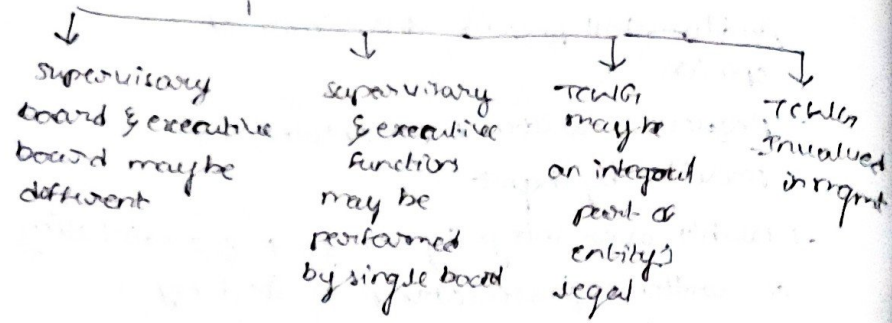 supervisary
board & executive
board maybe
different
supervisary
& executive
functions
may be
performed
by single board
TCWG
maybe
an integral
part of
entity's
legal
TCWG
Involved
in mgmt